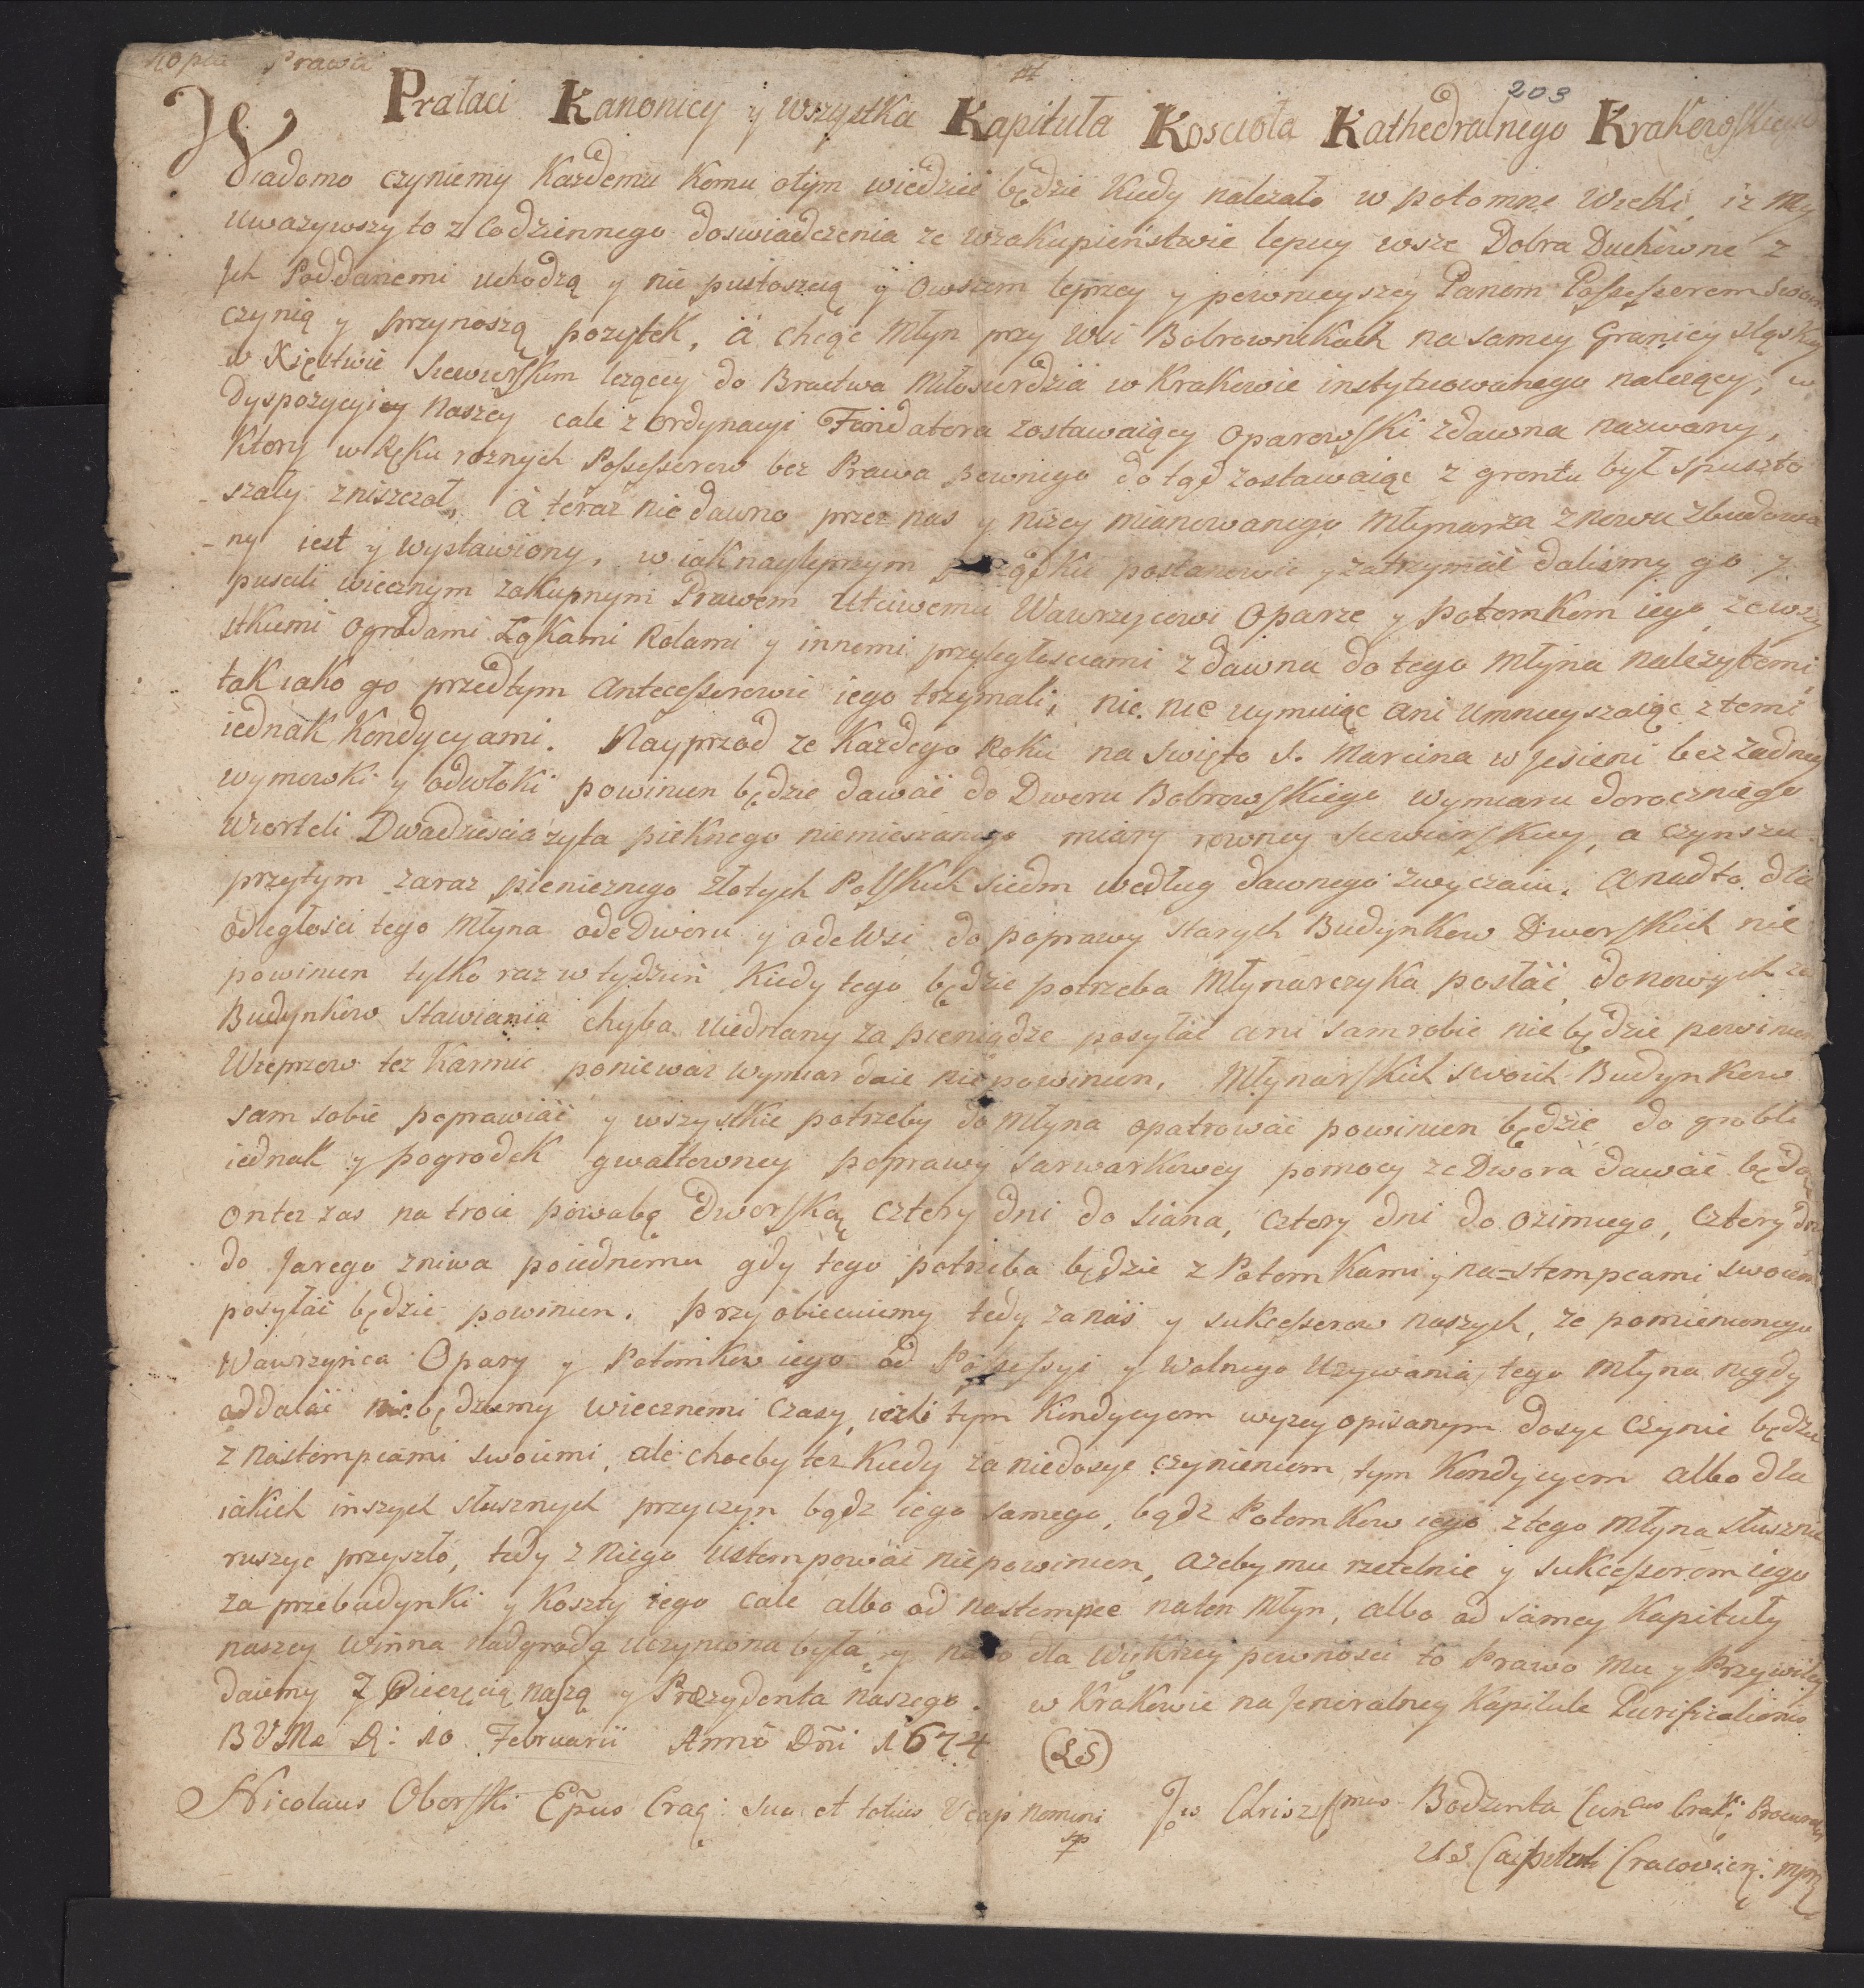 Kopia Prawa
203
Prałaci Kanonicy y wszystka Kapituła Kosciola Kathedralnego Krakowskiego
Wiadomo czyniemy Kazdemu Komu otym wiedzieć będzie Kiedy nalezało w potomne Wieki, iz My
uwazywszy to z Codziennego doswiadczenia ze wzakupieństwie lepiey wsze Dobra Duchowne z
Jch Poddanemi uchodzą y nie pustoszeią y owszem lepszey y pewnieyszey Panom Possessorem swoim
czynią y przynoszą pozytek, á chcąc Młyn przy Wsi Bobrownikach na samey Granicy Sląskiey
w Xięstwie Siewierskim lezącey do Bractwa Miłosierdzia w Krakowie instytuowanego nalezący, w
Dyspozycyiey Naszey cale z ordynacyi Fundatora zostawaiący Oparowski zdawna nazwany,
Ktory w Ręku roznych Possessorow bez Prawa pewnego do tąd zostawaiąc z gruntu był spusto
-szały zniszczał, á teraz nie dawno przez nas y nizey mianowanego Młynarza znowu zbudowa
-ny iest y wystawiony, w iak naylepszym porządku postanowic y zatrzymać daliśmy go y
puscili wiecznym zakupnym Prawem Utciwemu Wawrzycowi Oparze y Potomkom iego, zewszy
stkiemi ogrodami Łąkami Rolami y innemi przyległosciami zdawna do tego Młyna nalezytemi
tak iako go przedtym Antecessorowie iego trzymali, nic nie uymuiąc ani Umnieyszaiąc z temi
iednak Kondycyami. Nayprzod ze Kazdego Roku na Swięto S. Marcina w Jesieni bez zadney
wymowki y odwłoki powinien będzie dawáć do Dworu Bobrowskiego wymiaru dorocznego
Wierteli Dwadziescia zyta pieknego niemieszanego miary rowney Siewierskiey, a Czynszu
przytym zaraz pienieznego złotych Polskich siedm według dawnego zwyczaiu. A nadto dla
odległosci tego Młyna ode Dworu y ode Wsi do poprawy starych Budynkow Dworskich nie
powinien tylko raz w tydzień Kiedy tego będzie potrzeba Młynarczyka posłáć, do nowych za
Budynkow stawiania chyba uiednany za pieniądze posyłáć ani sam robic nie będzie powinien
Wieprzow tez Karmic poniewaz wymiar daie nie powinien. Młynarskich swoich Budynkow
sam sobie poprawiáć y wszystkie potrzeby do Młyna opatrowáć powinien będzie do grobli
iednak y pogrodek gwałtowney poprawy szarwarkowey pomocy ze Dwora dawáć będą
on tez zas na troie powabę Dworską, cztery dni do siana, cztery dni do ozimego, cztery dni
do Jarego zniwa poiednemu gdy tego potrzeba będzie z Potomkami y nastempcami swoiemi
posyłáć będzie powinien. Przyobiecuiemy tedy za nas y sukcessorow naszych, ze pomienionego
Wawrzyńca Opary y Potomkow iego od Possessyi y Wolnego Uzywania tego Młyna nigdy
oddaláć nie będziemy wiecznemi czasy, iezli tym Kondycyom wyzey opisanym dosyc czynic będzie
z nastempcami swoiemi, ale chocby tez Kiedy za niedosyc czynieniem tym Kondycyom albo dla
iakich inszych słusznych przyczyn bądz iego samego, bądz Potomkow iego z tego Młyna słusznie
ruszyc przyszło, tedy z niego Ustempowáć nie powinien, azeby mu rzetelnie y sukcessorom iego
za przebudynki y koszty iego cale albo od nastempce na ten Młyn, albo od samey Kapituły
naszey winna nadgroda uczyniona była, y na to dla więkzey pewnosci to Prawo mu y Przywiley
daiemy z Pieczęcią naszą y Prezydenta naszego. w Krakowie na Jeneralney Kapitule Purificationis
BVMæ D: 10 Februarii Anno Dñi 1674 (LS)
Nicolaus Oborski Epũs Crac: suo et totius Vcap nomini Bodzenta
Capituli Cracovien: mpria